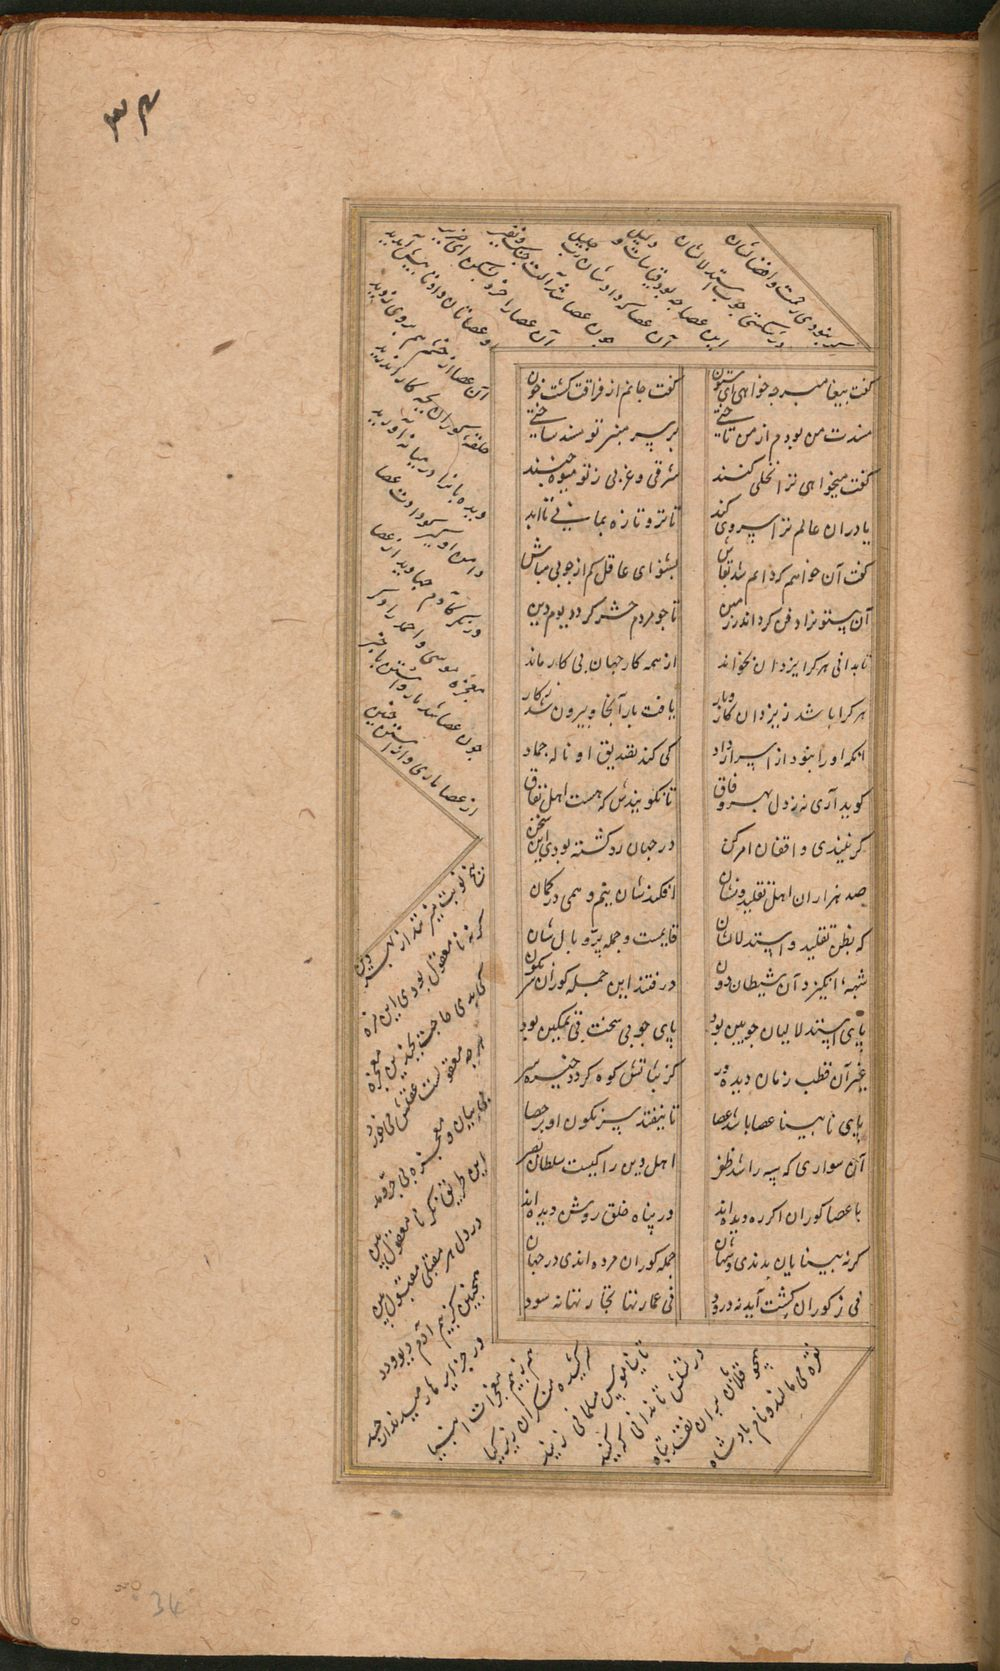 ۳۴
گفت پیغامبر چه خواهی ای ستون گفت جانم از فراقت گشت خون
مسندت من بودم از من تاختی بر سر منبر تو مسند ساختی
گفت میخواهی ترا نخلی کنند شرقی و غربی ز تو میوه چنند
یا در آن عالم ترا سروی کند تا تر و تازه بمانی تا ابد
گفت آن خواهم که دایم شد بقاش بشنو ای غافل کم از چوبی مباش
آن ستون را دفن کرد اندر زمین تا چو مردم حشر گردد یوم دین
تا بدانی هر کرا یزدان بخواند از همه کار جهان بی کار ماند
هر کرا باشد ز یزدان کار و بار یافت بار آنجا و بیرون شد ز کار
آنکه او را نبود از اسرار داد کی کند تصدیق او ناله جماد
گوید آری نه ز دل بهر وفاق تا نگویندش که هست اهل نفاق
گر نیندی واقفان امر کن در جهان رد گشته بودی این سخن
صد هزاران اهل تقلید و نشان افکندشان نیم وهمی در گمان
که بظن تقلید و استدلالشان قایمست و جمله پر و بالشان
شبهه انگیزد آن شیطان دون در فتند این جمله کوران سرنگون
پای استدلالیان چوبین بود پای چوبی سخت بی تمکین بود
غیر آن قطب زمان دیده ور کز ثباتش کوه گردد خیره سر
پای نابینا عصا باشد عصا تا نیفتد سرنگون او بر حصا
آن سواری که سپه را شد ظفر اهل دین را کیست سلطان بصر
با عصا کوران اگر ره دیده اند در پناه خلق روشن دیده اند
گر نه بینایان بدندی و شهان جمله کوران مرده اندی در جهان
نی ز کوران کشت آید نه درود نی عمارتها تجارتها نه سود
گر نبودی رحمت و افضالشان
در شکستی چوب استدلالشان
این عصا چه بود قیاسات و دلیل
آن عصا که دادشان بینا جلیل
چون عصا شد آلت جنگ و نفیر
آن عصا را خرد بشکن ای ضریر
او عصاتان داد تا پیش آمدید
آن عصا از خشم هم بر وی زدید
حلقه کوران بچه کار اندرید
دیده بانرا در میانه آورید
دامن او گیر کو دادت عصا
در نگر کآدم چها دید از عصا
معجزه موسی و احمد را نگر
چون عصا شد مار و استن با خبر
از عصا ماری و از استن حنین
پنج نوبت میزنند از بهر دین
گر نه نامعقول بودی این مزه
کی بدی حاجت بچندین معجزه
هر چه معقولست عقلش می خورد
بی بیان معجزه بی جر و مد
این طریق بکر نامعقول بین
در دل هر مقبلی مقبول بین
همچنین کز بیم آدم دیو و دد
در جزایر در رمیدند از حسد
هم ز بیم معجزات انبیا
سر کشیده منکران زیر گیا
تا بناموس مسلمانی زیند
در تسلس تا ندانی که کیند
همچو قلابان بر آن نقد تباه
نقره می مالند و نام پادشاه
34